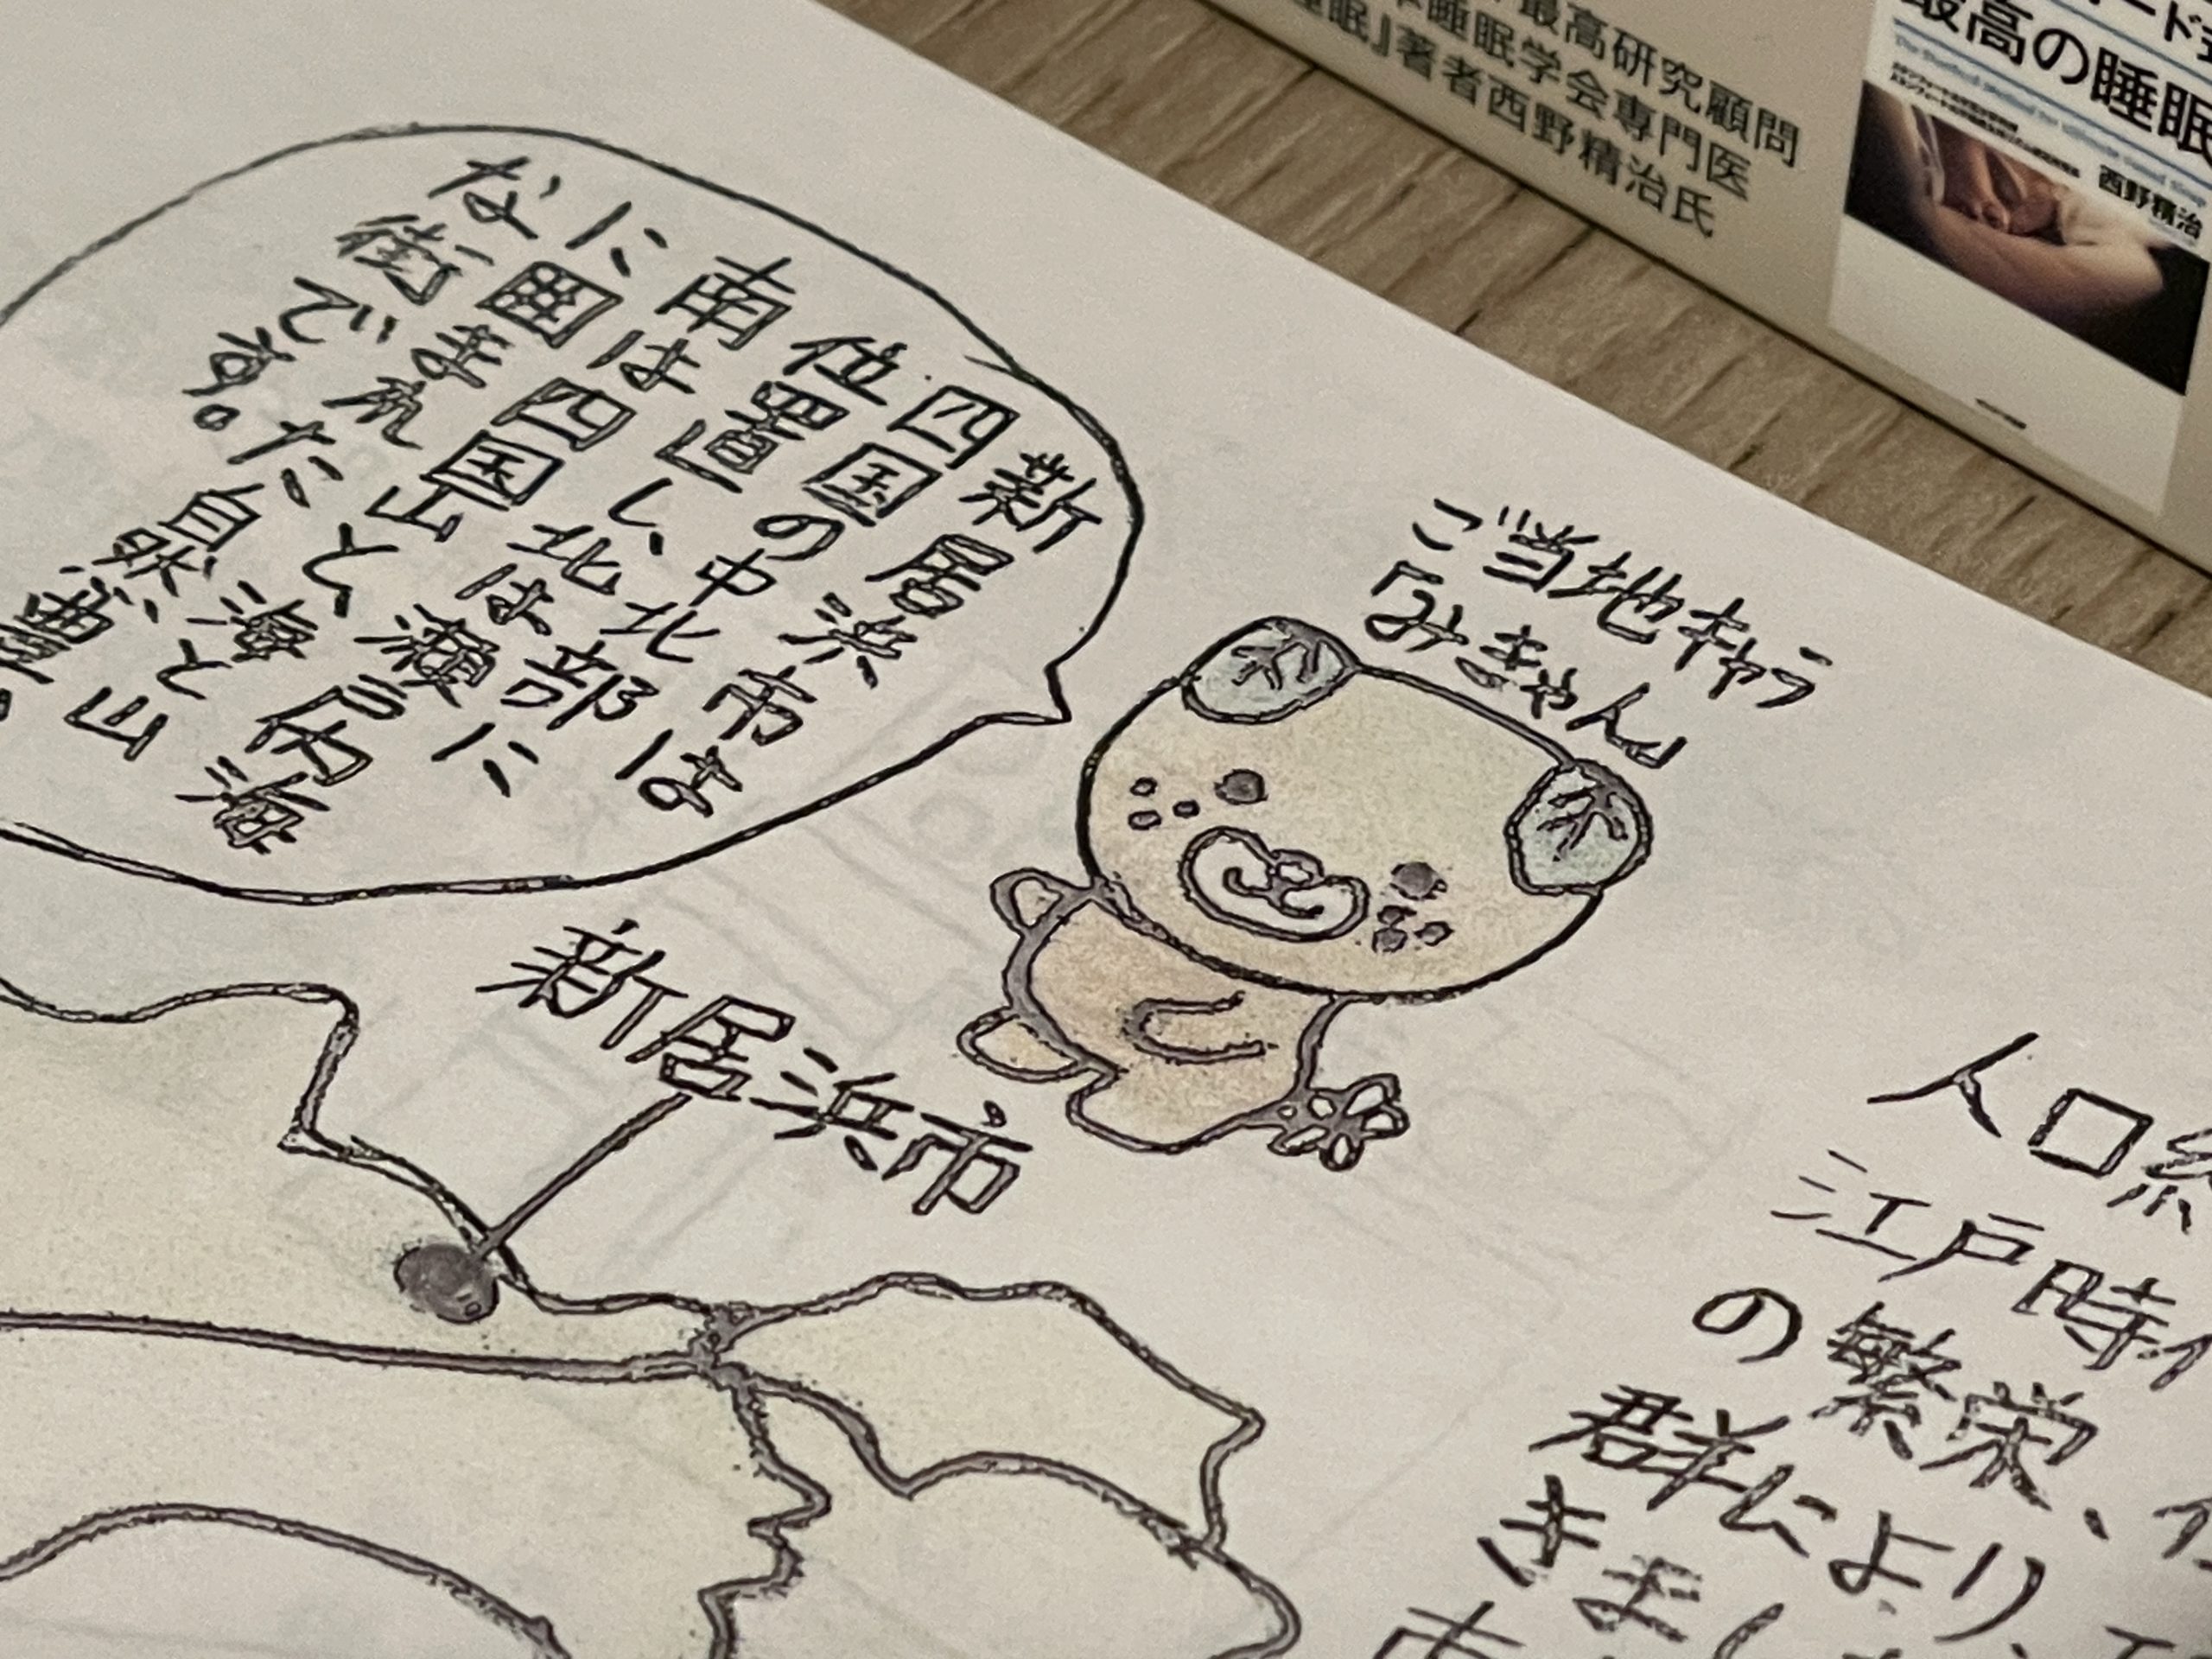 新居浜市は
四国の中北部に
位置し、北は瀬戸内海
南は四国山と海と山
に囲まれた自然豊
な街です。
ご当地キャラ
「みきゃん」
新居浜市
人口
江戸時
の繁栄、
群により、
きまし
最高研究顧問
睡眠学会専門医
睡眠』著者西野精治氏
ード
最高の睡眠
西野精治